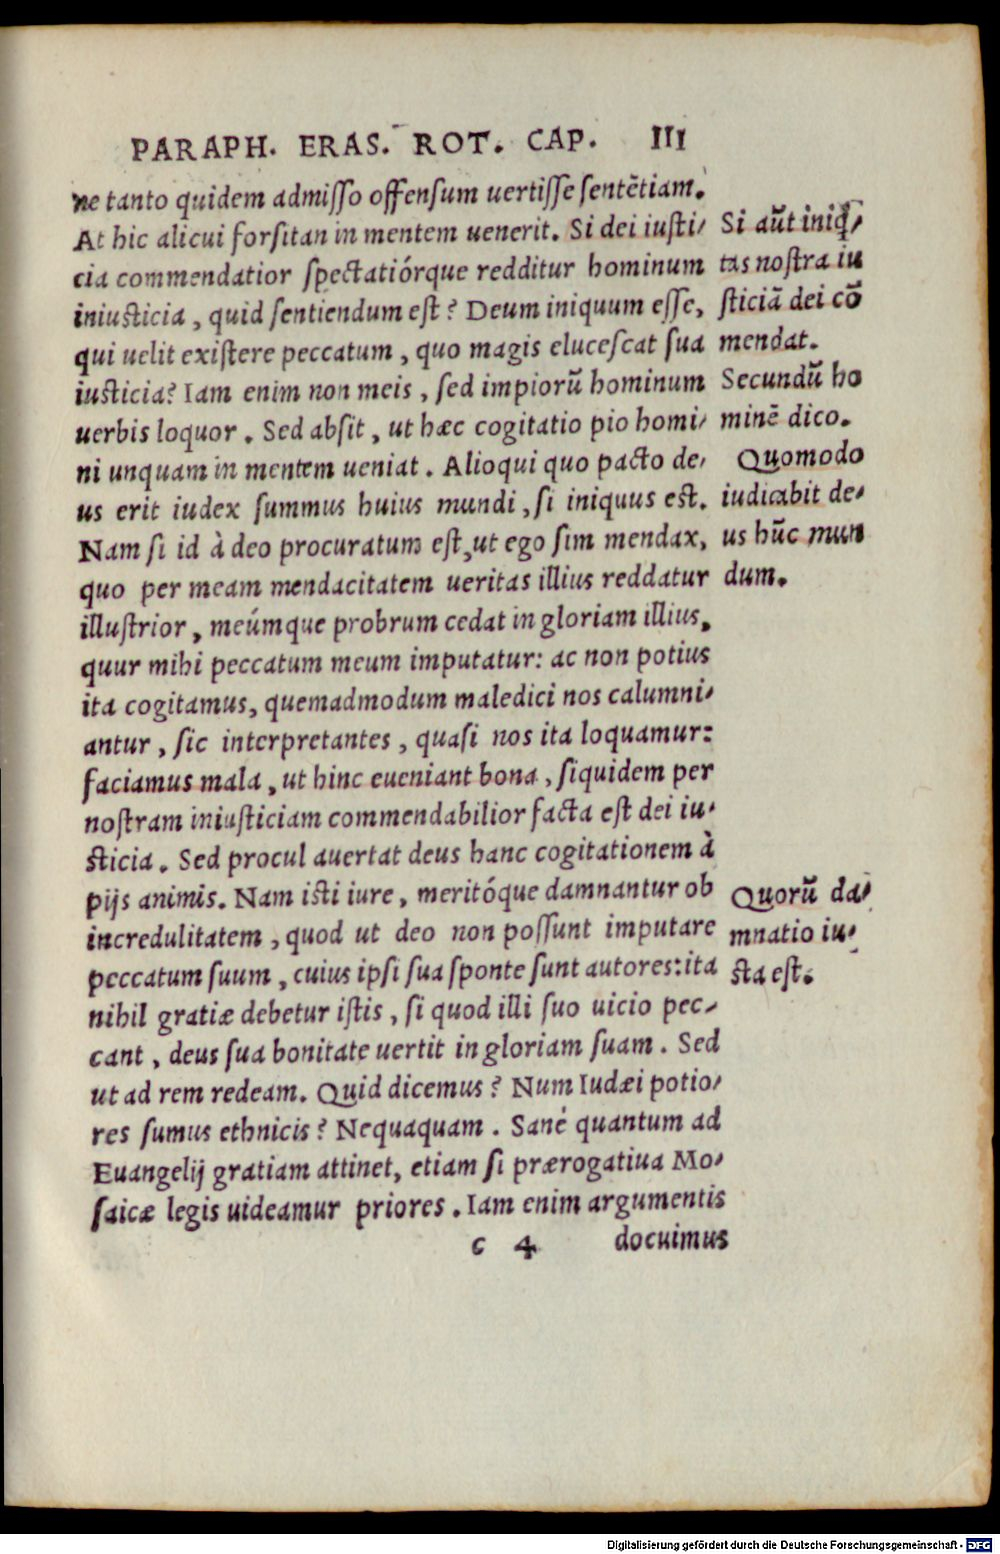 PARAPH. ERAS. ROT. CAP. III
ne tanto quidem admiſſo offenſum uertiſſe ſentẽtiam.
At hic alicui forſitan in mentem uenerit. Si dei iuſti/
cia commendatior ſpectatiórque redditur hominum
iniusticia, quid ſentiendum eſt? Deum iniquum eſſe,
qui uelit exiſtere peccatum, quo magis eluceſcat ſua
iusticia? Iam enim non meis, ſed impiorũ hominum
uerbis loquor. Sed abſit, ut hæc cogitatio pio homi/
ni unquam in mentem ueniat. Alioqui quo pacto de/
us erit iudex ſummus huius mundi, ſi iniquus est.
Nam ſi id à deo procuratum eſt, ut ego ſim mendax,
quo per meam mendacitatem ueritas illius reddatur
illuſtrior, meúmque probrum cedat in gloriam illius,
quur mihi peccatum meum imputatur: ac non potius
ita cogitamus, quemadmodum maledici nos calumni/
antur, ſic interpretantes, quaſi nos ita loquamur:
faciamus mala, ut hinc eueniant bona, ſiquidem per
noſtram iniuſticiam commendabilior facta eſt dei iu/
sticia. Sed procul auertat deus hanc cogitationem à
pijs animis. Nam isti iure, meritóque damnantur ob
incredulitatem, quod ut deo non poſſunt imputare
peccatum ſuum, cuius ipſi ſua ſponte ſunt autores: ita
nihil gratiæ debetur iſtis, ſi quod illi ſuo uicio pec/
cant, deus ſua bonitate uertit in gloriam ſuam. Sed
ut ad rem redeam. Quid dicemus? Num Iudæi potio/
res ſumus ethnicis? Nequaquam. Sanè quantum ad
Euangelij gratiam attinet, etiam ſi prærogatiua Mo/
ſaicæ legis uideamur priores. Iam enim argumentis
c 4 docuimus
Si aũt iniq̃/
tas noſtra iu
ſticiã dei cõ
mendat.
Secundũ ho
minẽ dico.
Quomodo
iudicabit de/
us hũc mun
dum.
Quorũ da/
mnatio iu/
ſta eſt.
Digitalisierung gefördert durch die Deutsche Forschungsgemeinschaft - DFG